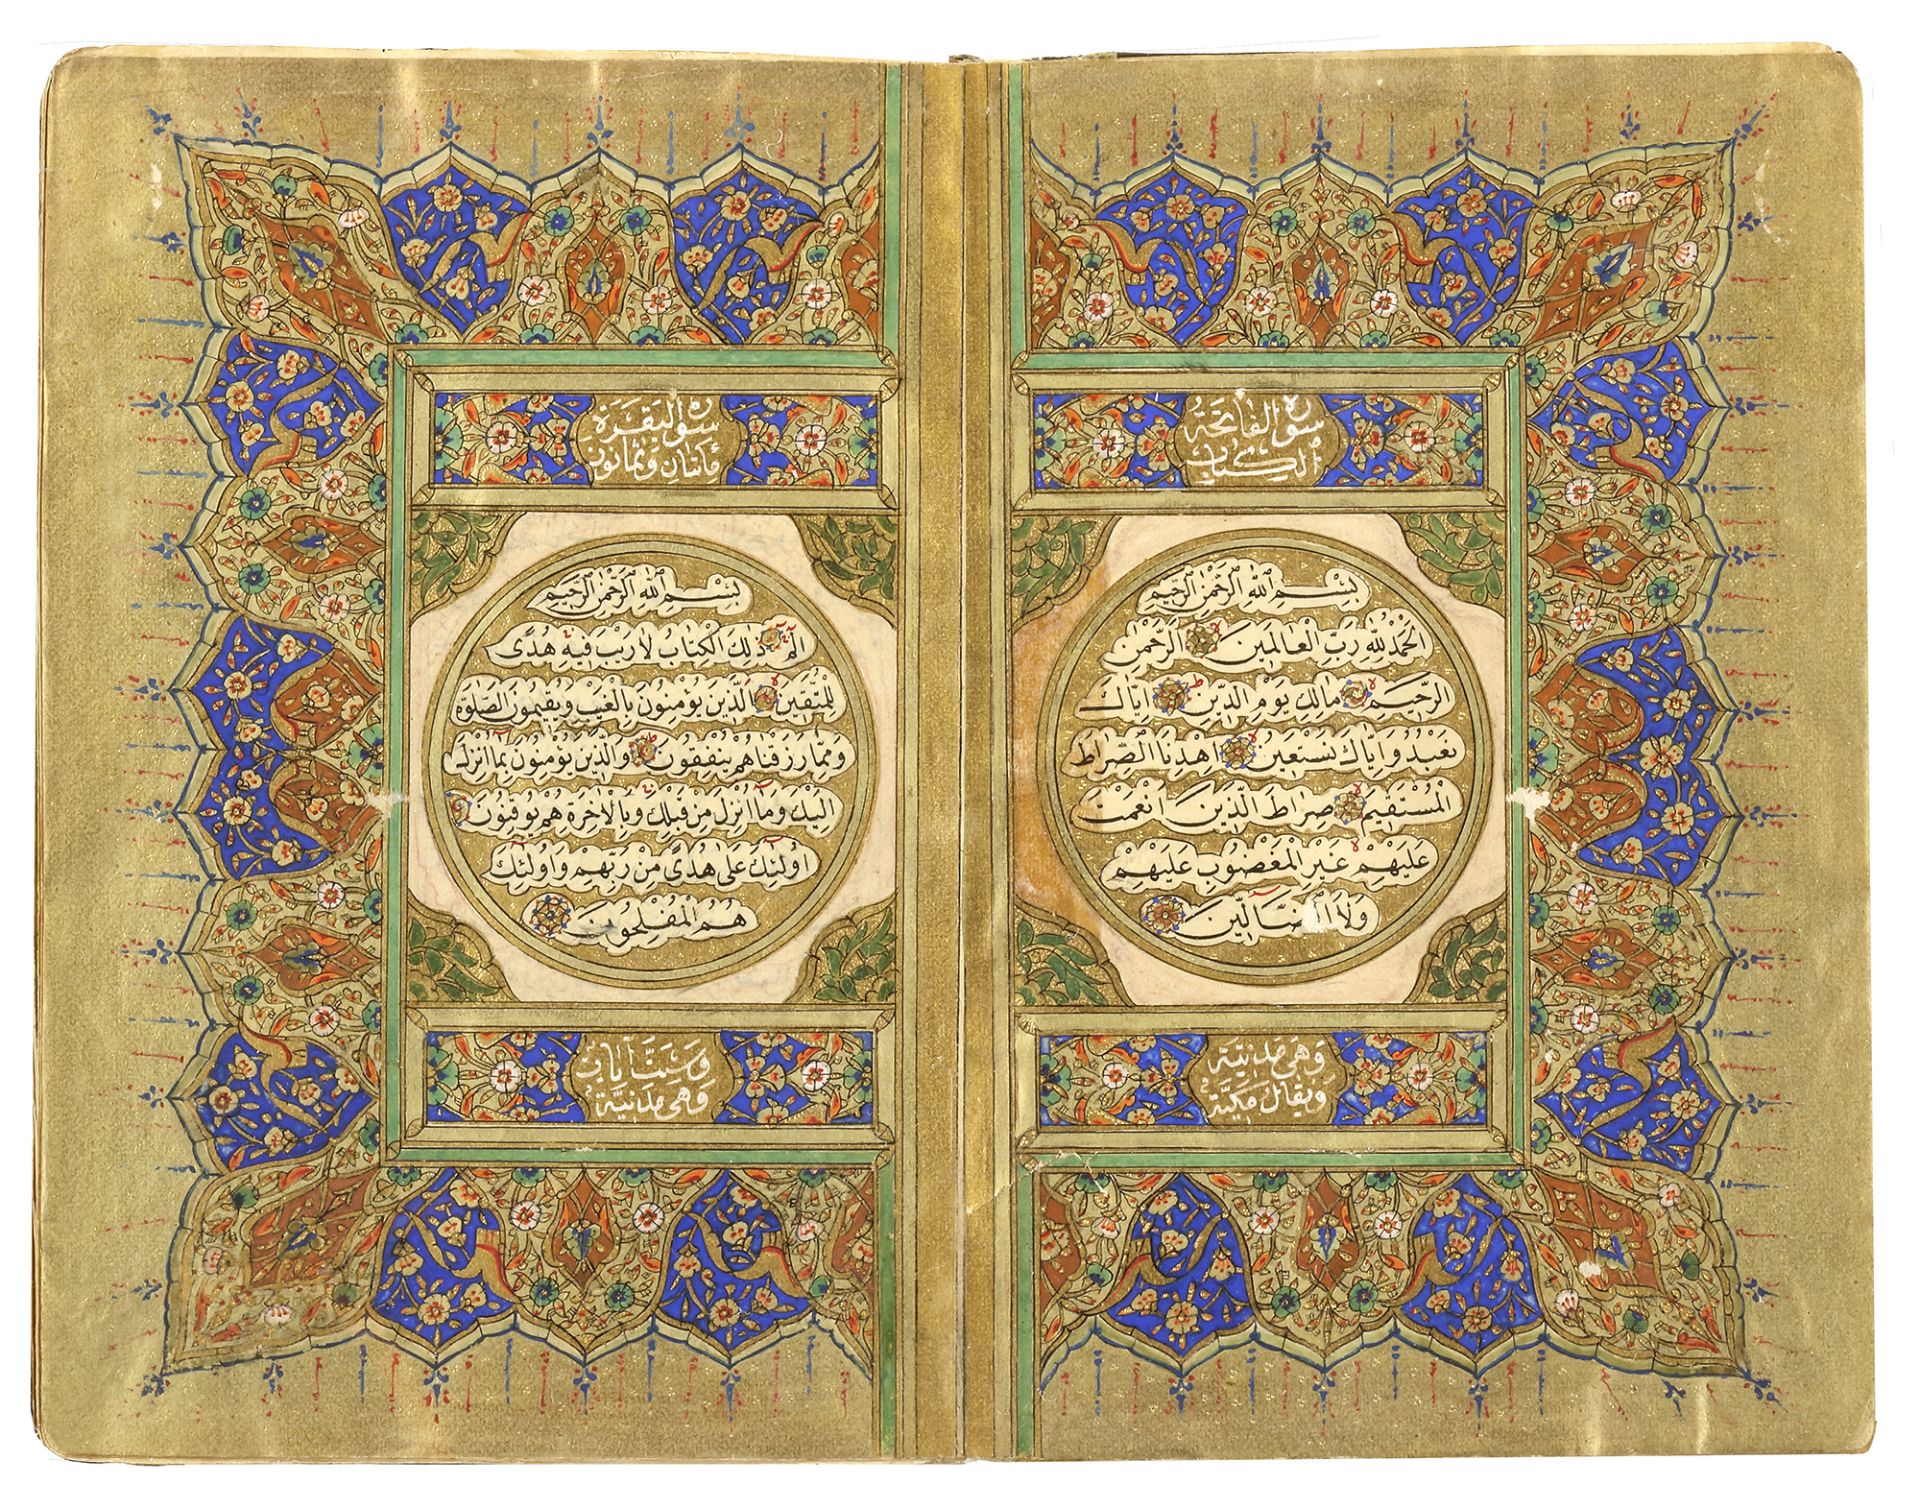 سورة الفاتحة
الكتاب
بسم الله الرحمن الرحيم
الحمد لله رب العالمين الرحمن
الرحيم مالك يوم الدين اياك
نعبد واياك نستعين اهدنا الصراط
المستقيم صراط الذين انعمت
عليهم غير المغضوب عليهم
ولا الضالين
وهى مدنية
ويقال مكية
سورة البقرة
مائتان وثمانون
بسم الله الرحمن الرحيم
الم ذلك الكتاب لا ريب فيه هدى
للمتقين الذين يؤمنون بالغيب ويقيمون الصلوة
ومما رزقناهم ينفقون والذين يؤمنون بما انزل
اليك وما انزل من قبلك وبالاخرة هم يوقنون
اولئك على هدى من ربهم واولئك
هم المفلحون
وست آيات
وهى مدنية